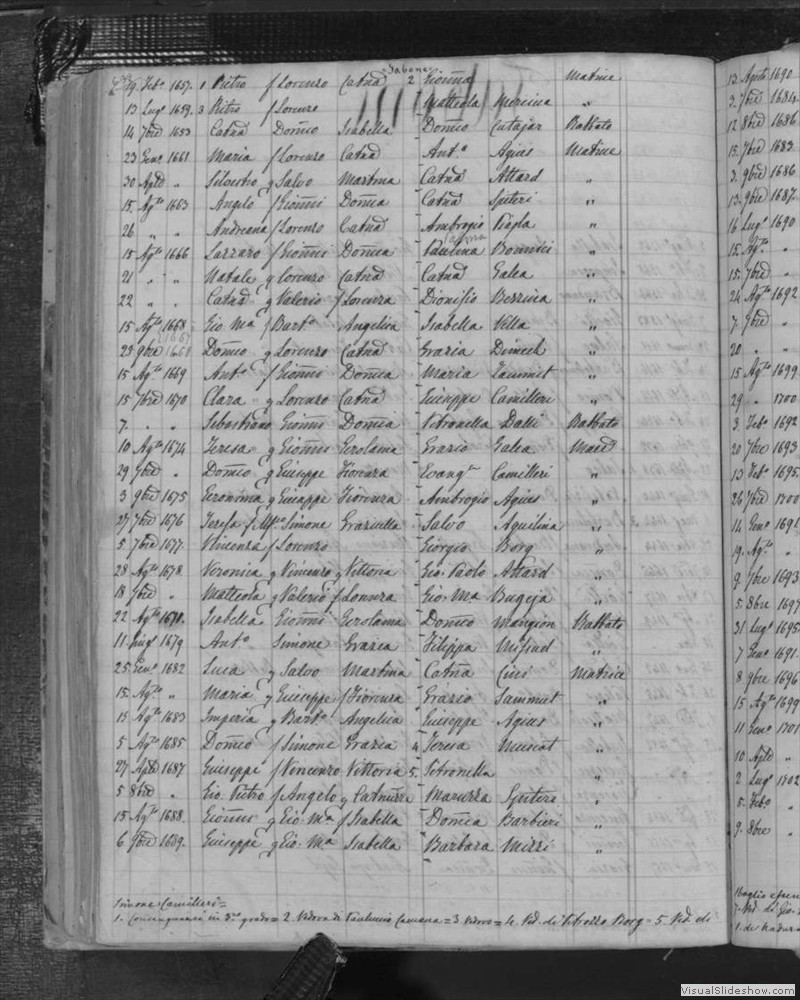 Sabone
19 Feb. 1657. 1 Pietro f Lorenzo Catna 2 Gionna Matrice
13 Lug. 1659. 3 Pietro f Lorenzo Matteola Mercieca "
14 7bre 1653 Catna Domco Isabella Domco Cutajar Babbato
23 Genn 1661 Maria f Lorenzo Catna Ant.a Agius Matrice
30 Aple " Silvestro g Salvo Martina Catna Attard "
15 Ag.to 1663 Angelo f Gionni Domca Catna Spiteri "
26 " " Andreana f Lorenzo Catna Ambrogio "
15 Ag.to 1666 Lazzaro f Gionni Domca Paulina Bonnici "
21 " " Natale g Lorenzo Catna Catna Galea "
22 " " Catna g Valerio f Lorenza Dionisio "
15 Ag.to 1668 Gio Ma f Bart.o Angelica Isabella Vella "
23 9bre 1668 Domco g Lorenzo Catna Grazia Dimech "
15 Ag.to 1669 Ant.o f Gionni Domca Maria Zammit "
15 7bre 1670 Clara g Lorenzo Catna Giuseppe Camilleri "
7. " " Sebastiano Gionni Domca Petronella Dalli Babbato
10 Ag.to 1674 Teresa g Gionni Gerolama Grazio Galea
29 7bre " Domco g Giuseppe Fiorenza Evang.ta Camilleri "
3 9bre 1675 Geronima g Giuseppe Fiorenza Ambrogio Agius "
27 7bre 1676 Teresa f Simone Graziulla Salvo Aquilina "
5 7bre 1677. Vincenza f Lorenzo Giorgio Borg "
28 Ag.to 1678 Veronica g Vincenzo g Vittoria Gio: Paolo Attard "
18 7bre " Matteola g Valerio f Lonura Gio: Ma Bugeja "
22 Ag.to 1678. Isabella Gionni Gerolama Domco Mangion Babbato
11 Lug.o 1679 Ant.o Simone Grazia Filippa Mifsud "
25 Gen.o 1682 Luca g Salvo Martina Catna Cini Matrice
15. Ag.to " Maria g Giuseppe f Fiorenza Grazio Sammut "
15 Ag.to 1683 Imperia g Bart.o Angelica Giuseppe Agius "
5 Ag.to 1685 Domco f Simone Grazia 4 Teresa Muscat "
27 Aple 1687 Giuseppe f Vincenzo Vittoria 5. Petronella "
5 8bre " Gio: Pietro f Angelo g Maruzza Spiteri "
15 Ag.to 1688. Gionni g Gio: Ma f Isabella Domca Barbieri "
6 9bre 1689. Giuseppe g Gio: Ma Isabella Barbara Mizzi "
Simone Camilleri=
1. Consanguinei in 3.zo grado= 2. Vedova di Paulucio = 3 Vedovo= 4 Ved. di Borg= 5 Ved. di
13 Agosto 1690
3. 7bre 1684
12 8bre 1686
15. 7bre 1683
3. 9bre 1686
13. 9bre 1687
16 Lug.o 1690
15. Ag.to "
15. 7bre "
24 Ag.to 1692
7. 9bre "
20 " "
15 Ag.to 1699
29 " 1700
3. Feb.o 1692
20 7bre 1693
13 Feb.o 1695
26 7bre 1700
14 Gen.o 1691
19. Ag.to "
9. 7bre 1693
5. 8bre 1697
31 Lug.o 1695
7 Gen.o 1691.
8 9bre 1696
15 Ag.to 1699
11 Gen.o 1701
10. Aple "
2 Lug.o 1702
5. Feb.o "
9. 8bre "
7. Ved. di Gio:
VisualSlideshow.com